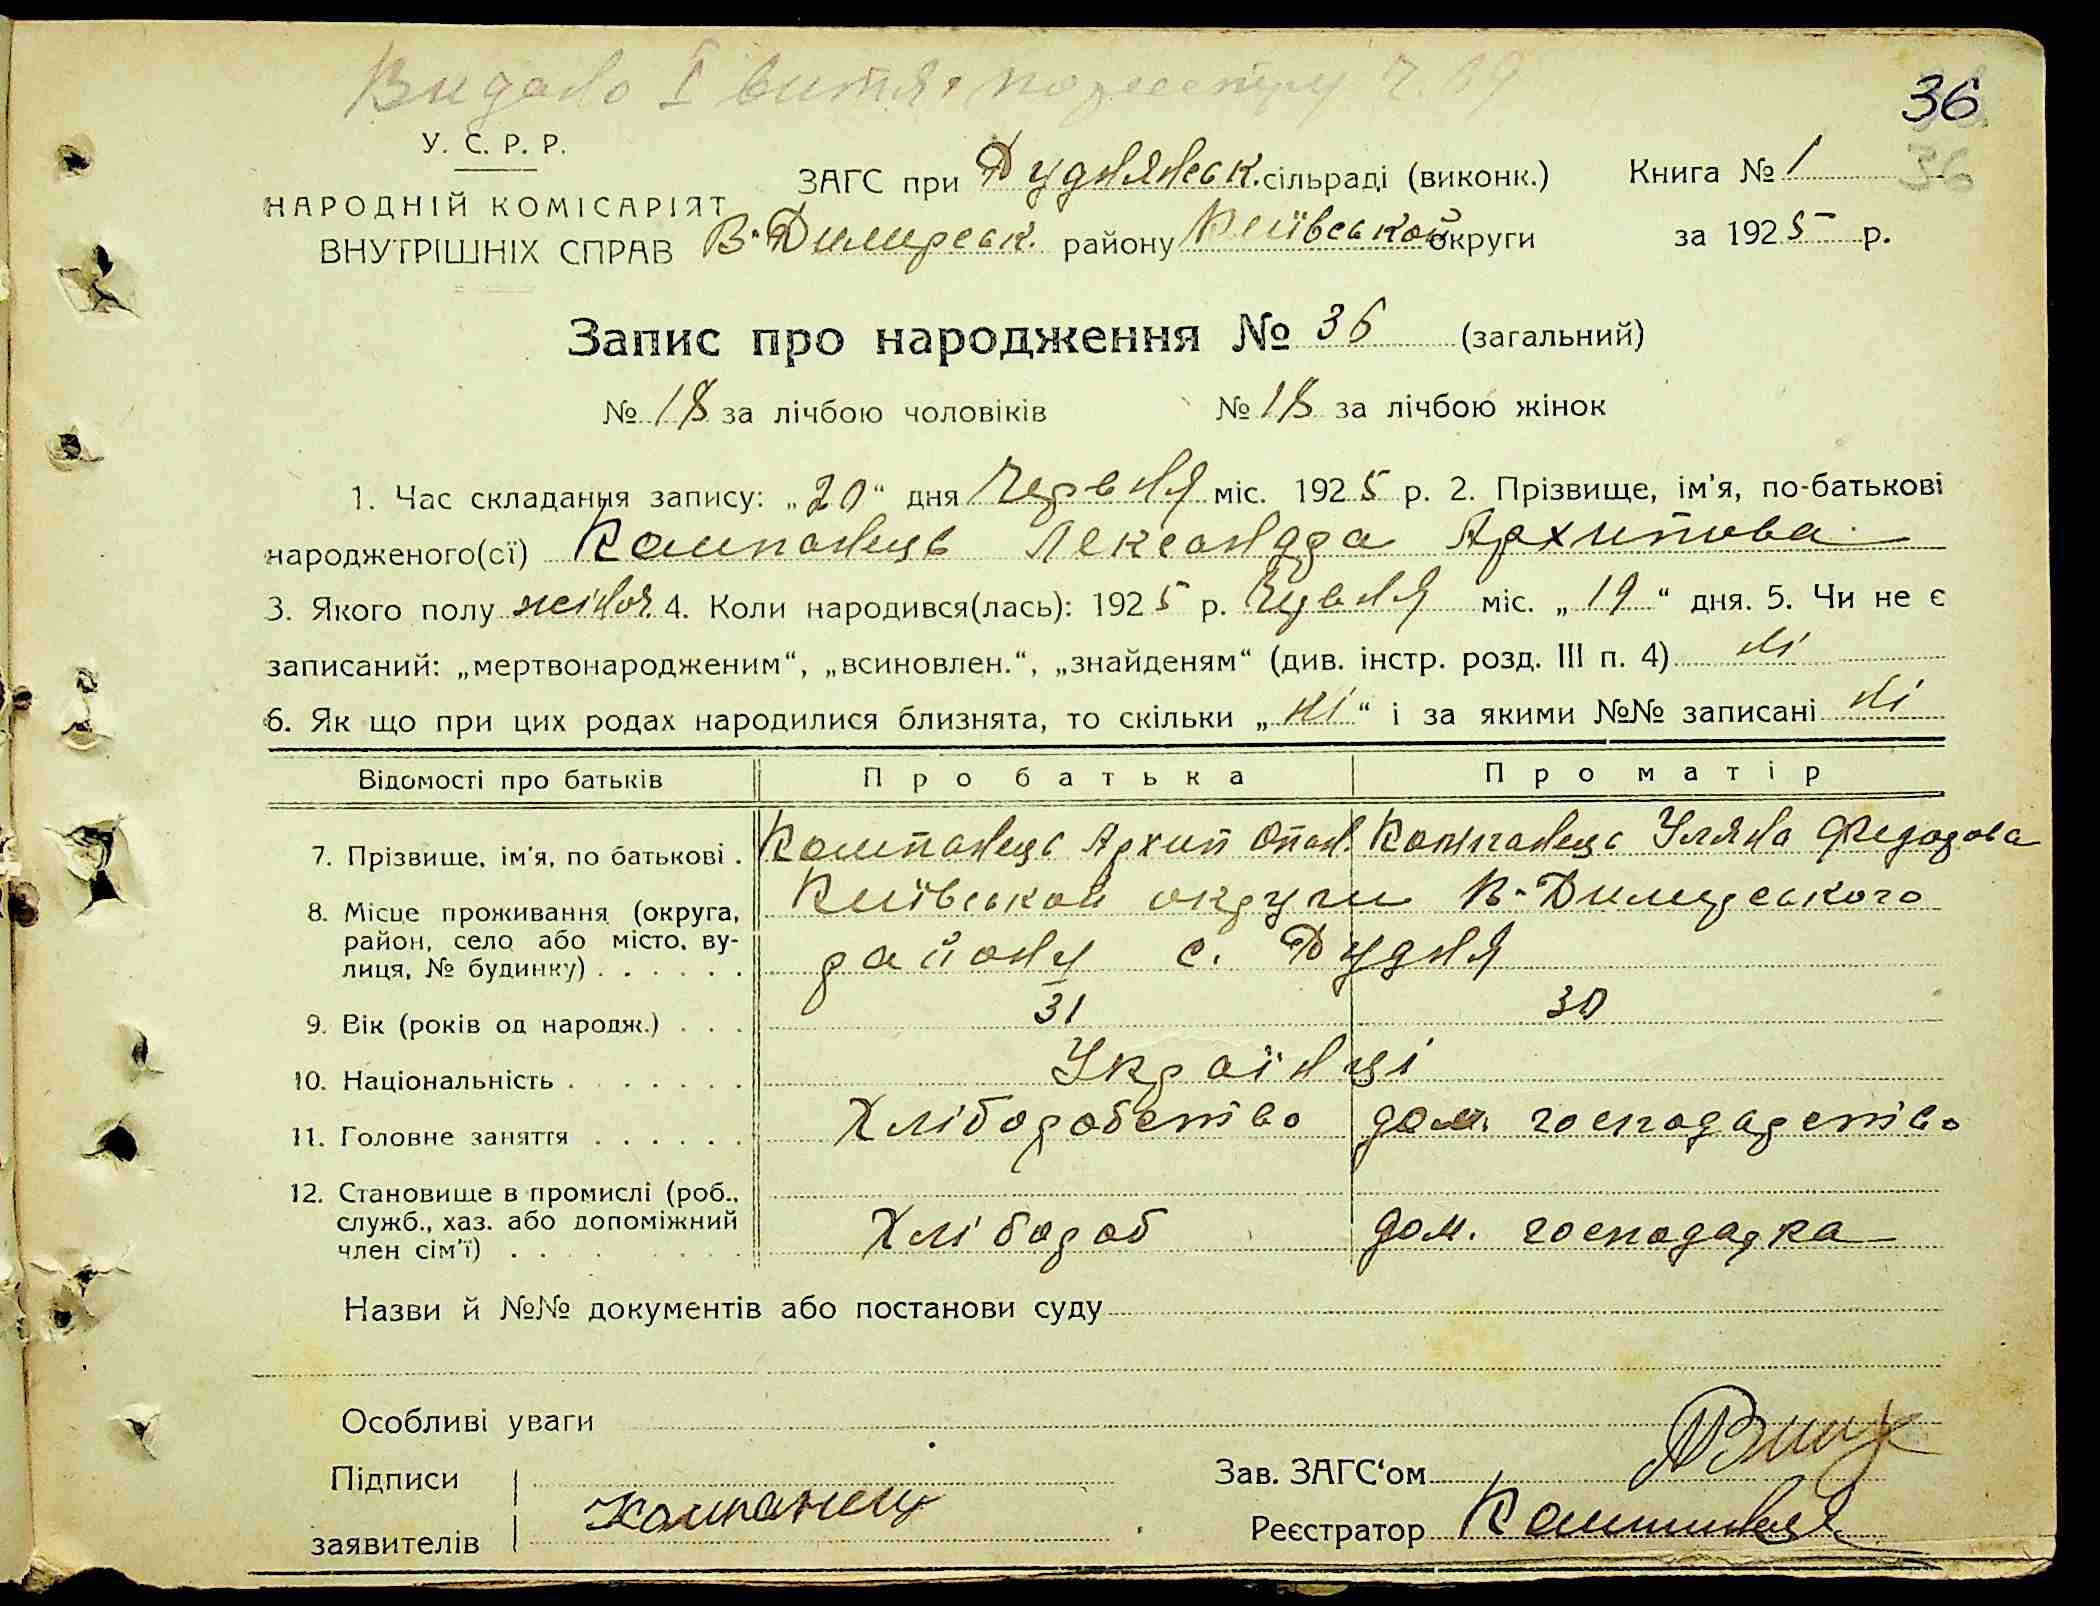 Видано I витяг по реєстру Ч. 69
36
36
У. С. Р. Р.
НАРОДНІЙ КОМІСАРІЯТ
ВНУТРІШНІХ СПРАВ
ЗАГС при Руднянськ. сільраді (виконк.)
В-Димирськ. району Київської округи
Книга № 1
за 1925 р.
Запис про народження № 36 (загальний)
№ 18 за лічбою чоловіків № 18 за лічбою жінок
1. Час складання запису: „20“ дня Червня міс. 1925 р. 2. Прізвище, ім'я, по-батькові
народженого(сї) Компанець Лександра Архипова
3. Якого полу жіноч. 4. Коли народився(лась): 1925 р. Червня міс. „19“ дня. 5. Чи не є
записаний: „мертвонародженим“, „всиновлен.“, „знайденям“ (див. інстр. розд. III п. 4) ні
6. Як що при цих родах народилися близнята, то скільки „ні“ і за якими №№ записані ні
Відомості про батьків Про батька Про матір
7. Прізвище, ім'я, по батькові . Компанець Архип Опан. Компанець Уляна Федорова
8. Місце проживання (округа, район, село або місто, вулиця, № будинку) . . . . . .
Київської округи В-Димирського
району с. Рудня
9. Вік (років од народж.) . . . 31 30
10. Національність . . . . . . . Українці
11. Головне заняття . . . . . . Хліборобство дом. господарство
12. Становище в промислі (роб.,
служб., хаз. або допоміжний
член сім'ї) . . . . . . . . Хлібороб дом. господарка
Назви й №№ документів або постанови суду
Особливі уваги
Підписи
заявителів Компанець
Зав. ЗАГС‘ом
Реєстратор Компанець